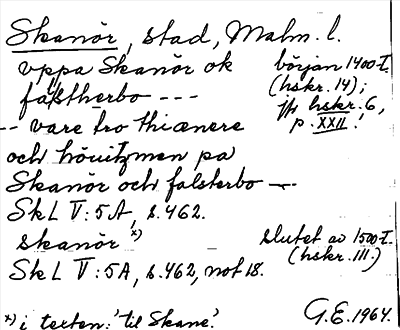 Skanör, stad, Malm. l.
uppa Skanör ok början 1400-t.
falstherbo --- (hskr. 14);
jfr hskr. 6,
-- vare tro thiænere p. XXII!
och höuitzmen pa
Skanör och falsterbo --
Sk L V:5A, s. 462.
skanör x) slutet av 1500-t.
(hskr. III.)
Sk L V:5A, s. 462, not 18.
x) i texten: 'til Skane'. G.E. 1964.